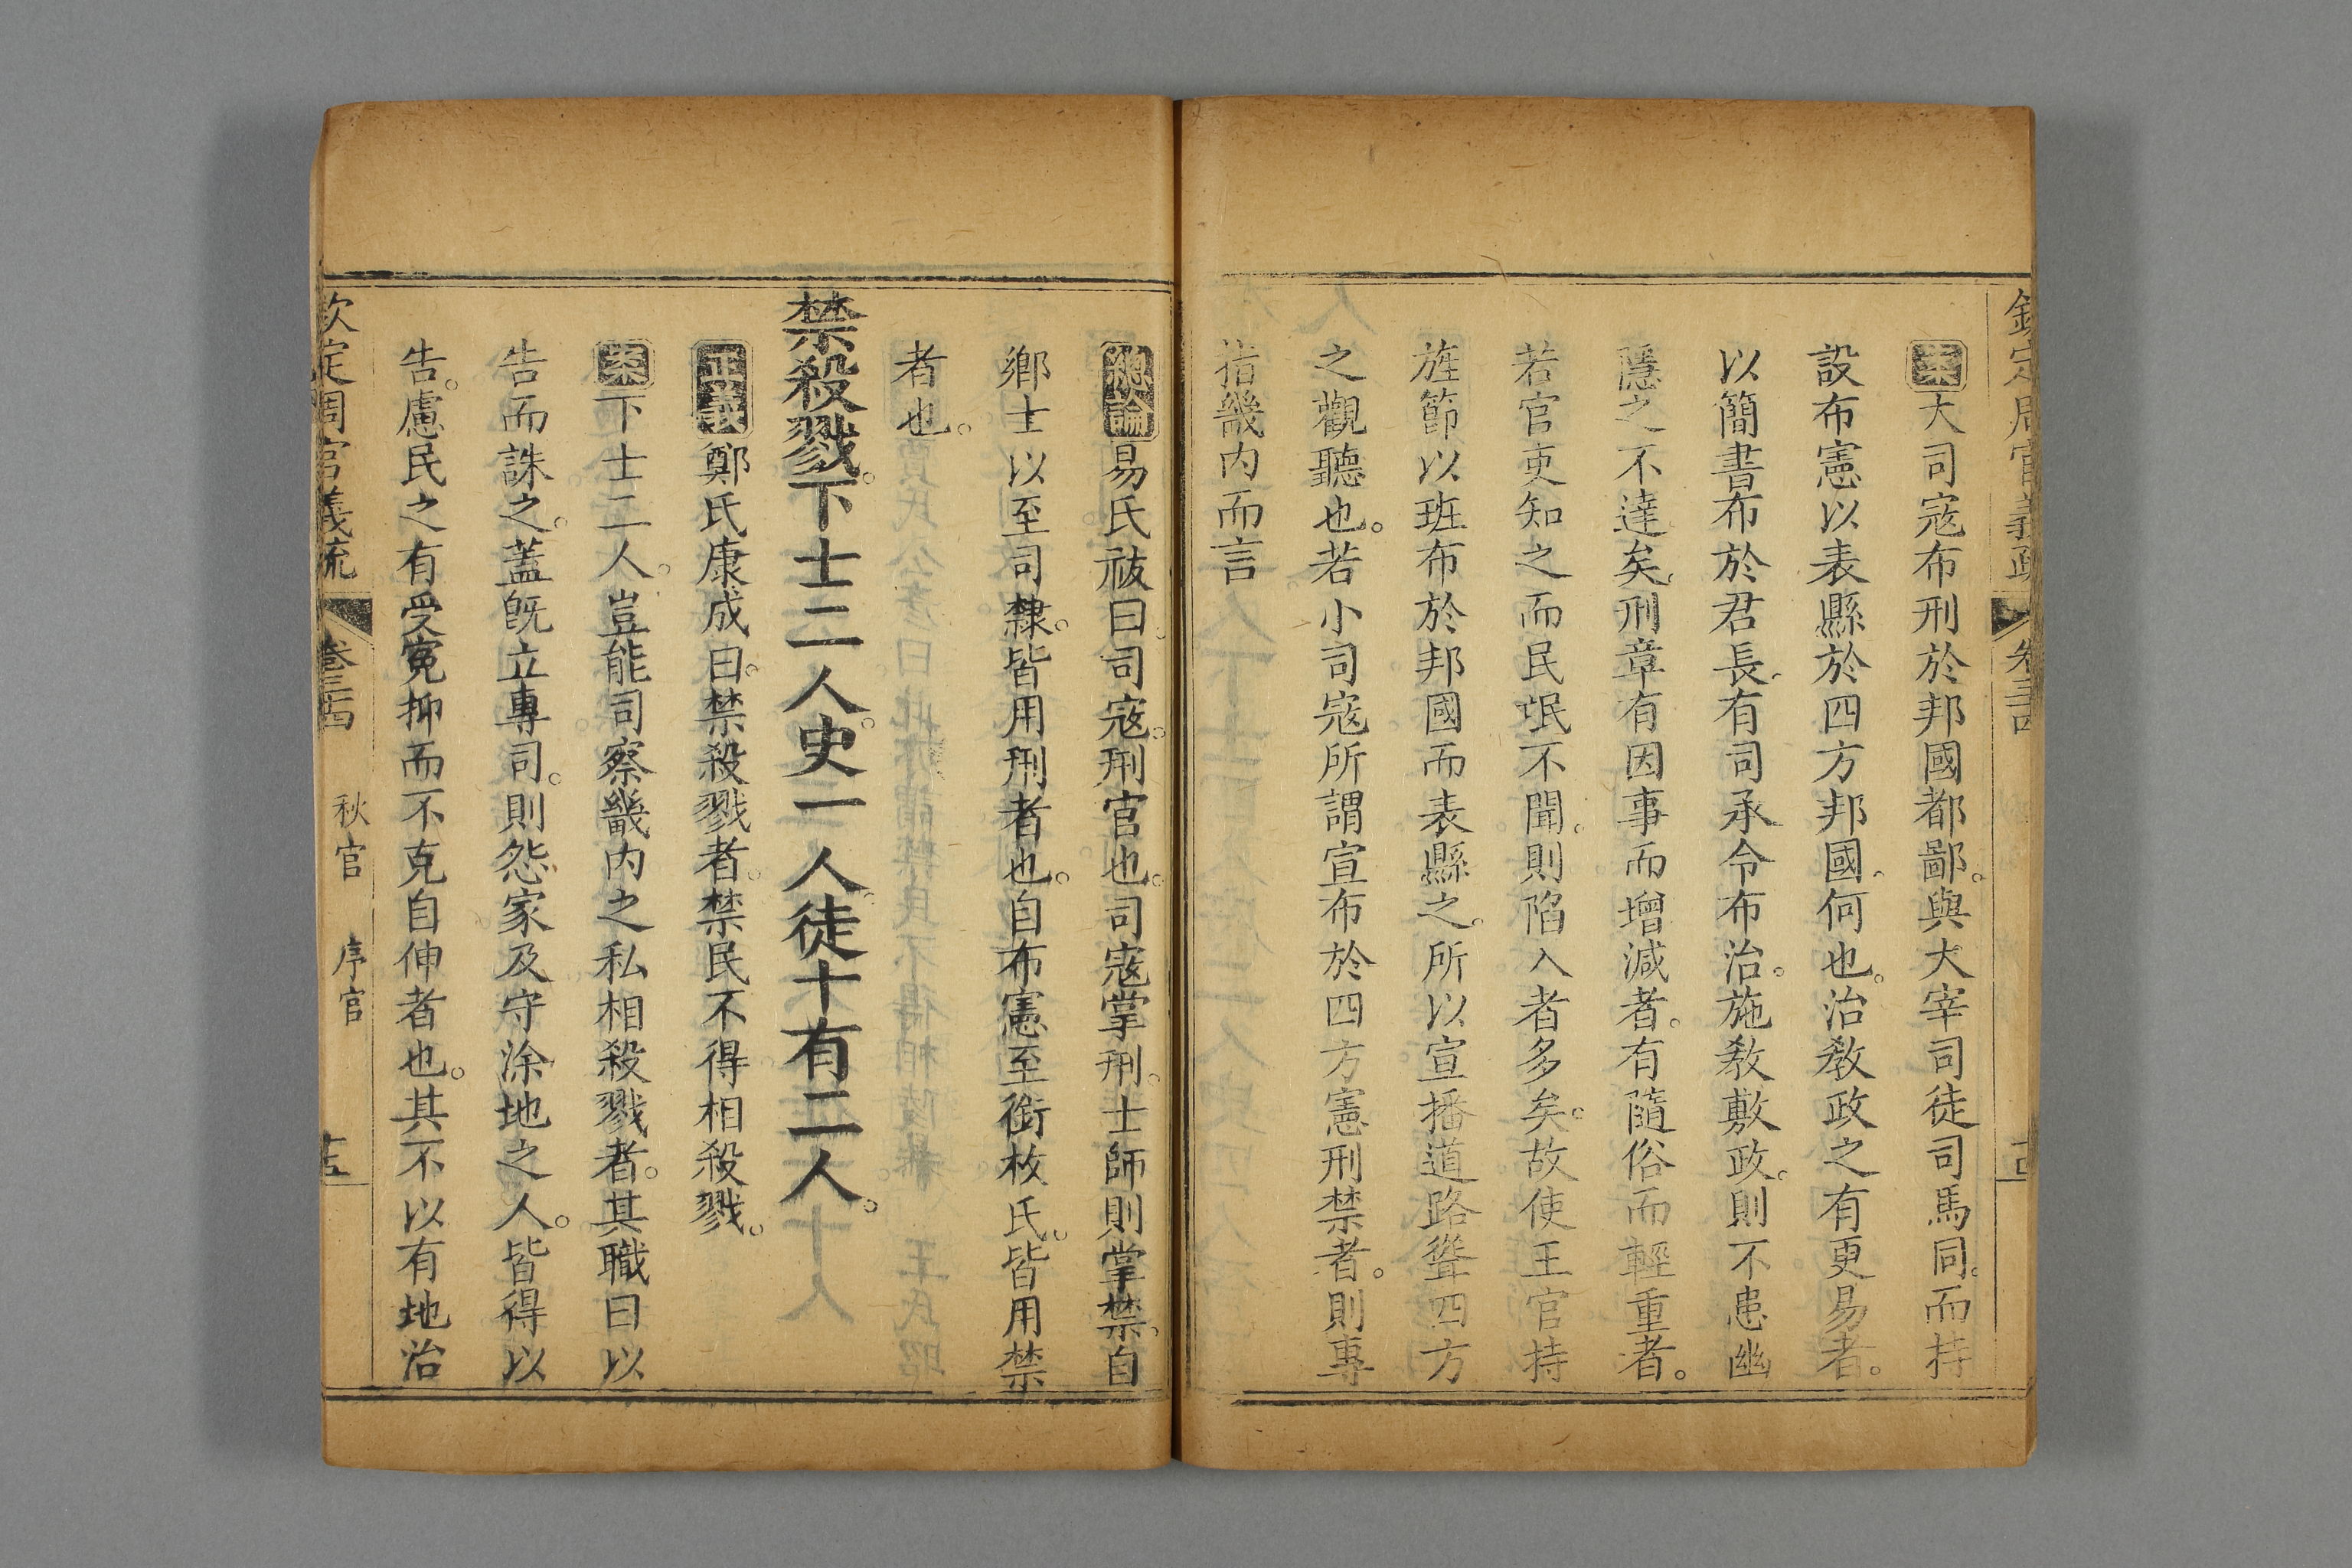 欽定周官義疏 卷三十四
案大司寇布刑於邦國都鄙。與大宰司徒司馬同。而持
設布憲以表縣於四方邦國。何也。治敎政之有更易者。
以簡書布於君長。有司承令布治。施敎敷政。則不患幽
隱之不達矣。刑章有因事而增減者。有隨俗而輕重者。
若官吏知之而民氓不聞。則陷入者多矣。故使王官持
旌節以班布於邦國而表縣之。所以宣播道路聳四方
之觀聽也。若小司寇所謂宣布於四方憲刑禁者。則專
指畿內而言
總論易氏祓曰。司寇。刑官也。司寇掌刑。士師則掌禁。自
鄉士以至司隸。皆用刑者也。自布憲至銜枚氏。皆用禁
者也。
禁殺戮。下士二人。史一人。徒十有二人。
正義鄭氏康成曰。禁殺戮者。禁民不得相殺戮。
案下士二人。豈能司察畿內之私相殺戮者。其職曰以
告而誅之。蓋旣立專司。則怨家及守涂地之人。皆得以
告。慮民之有受寃抑而不克自伸者也。其不以有地治
欽定周官義疏 卷三十四 秋官 序官 十五